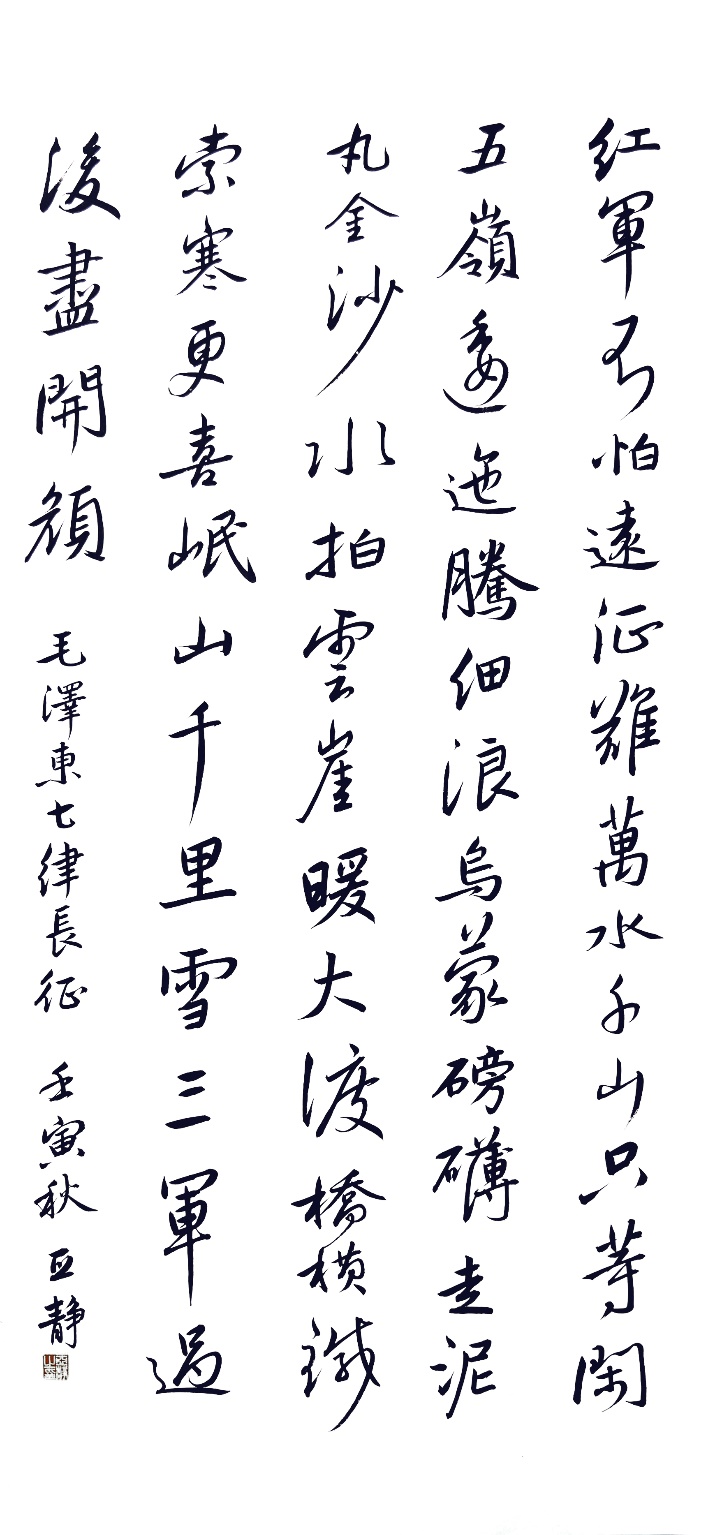 红軍不怕遠征難萬水千山只等閑
五嶺逶迤騰细浪烏蒙磅礴走泥
丸金沙水拍雲崖暖大渡橋横鐵
索寒更喜岷山千里雪三軍過
後盡開顔
毛澤東七律長征 壬寅秋 亚静